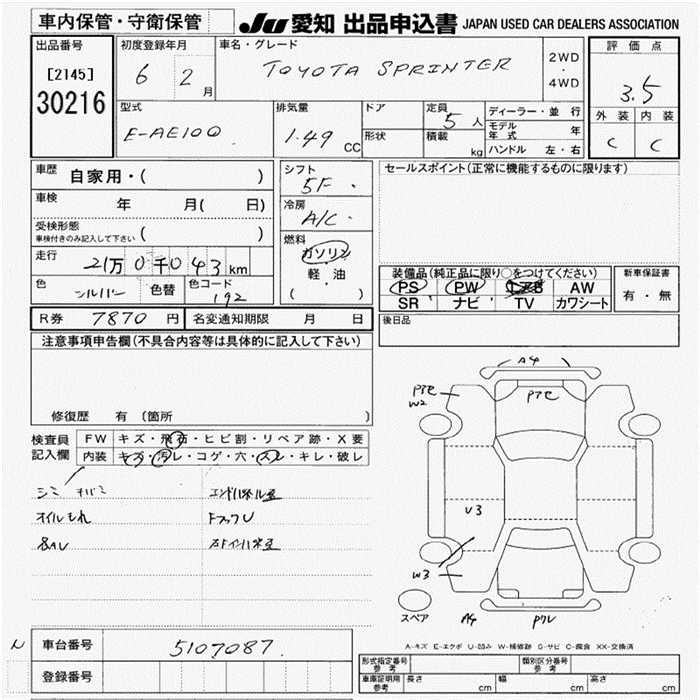 車内保管・守衛保管
JU 愛知 出品申込書 JAPAN USED CAR DEALERS ASSOCIATION
出品番号
[2145]
30216
初度登録年月
6 2 月
車名・グレード
TOYOTA SPRINTER
2WD
・
4WD
評価点
3.5
外装 内装
C C
型式
E-AE100
排気量
1.49 CC
ドア
形状
定員
5 人
積載
kg
ディーラー・並行
モデル年式 年
ハンドル 左・右
車歴 自家用・( )
車検 年 月( 日)
受検形態
車検付きのみ記入して下さい ( )
走行 21万0千043 km
色 シルバー 色替 色コード 192
シフト
5F
冷房
A/C
燃料
ガソリン
軽・油
( )
セールスポイント(正常に機能するものに限ります)
装備品(純正品に限り○をつけてください)
PS PW エアB AW
SR ナビ TV カワシート
新車保証書
有・無
後日品
R券 7870 円 名変通知期限 月 日
注意事項申告欄(不具合内容等は具体的に記入して下さい)
修復歴 有 (箇所 )
検査員
記入欄
FW キズ・飛石・ヒビ割・リペア跡・X要
内装 キズ・汚レ・コゲ・穴・スレ・キレ・破レ
シミ
オイルもれ
A4
W2
U3
W3
A4
スペア
A-キズ E-エクボ U-凹み W-補修跡 G-サビ C-腐食 XX-交換済
N
車台番号 5107087
登録番号
形式指定番号
参考
類別区分番号
参考
車庫証明用
参考
長さ cm 幅 cm 高さ cm